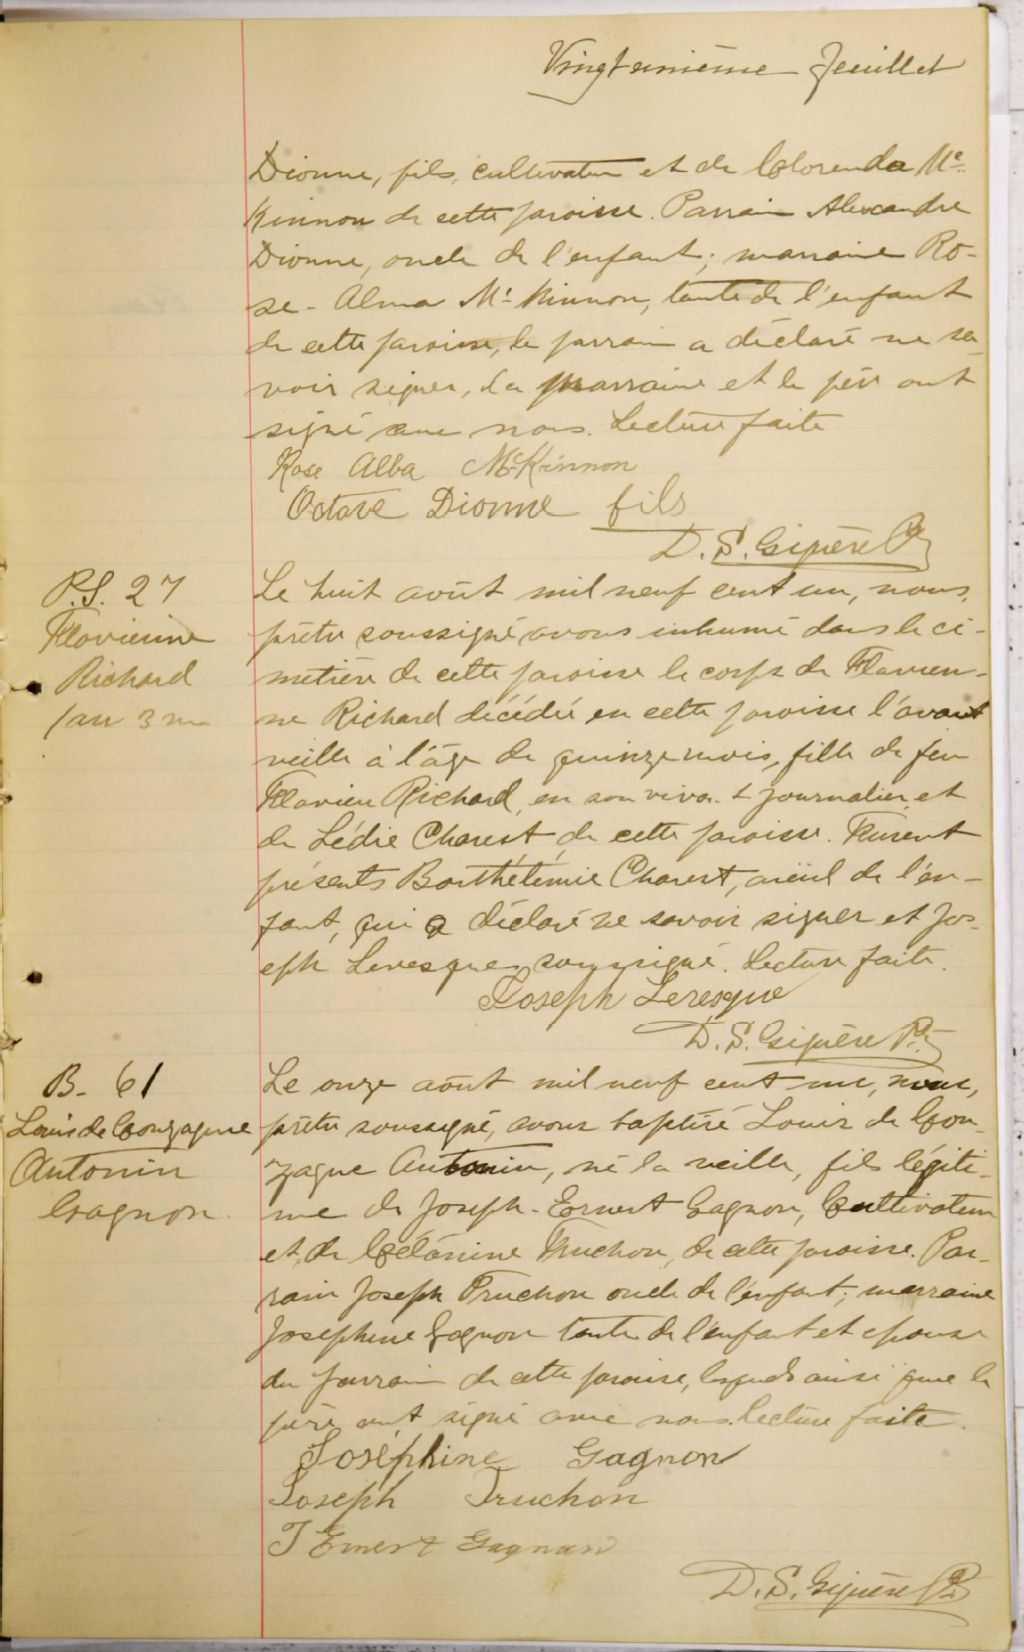 Vingt unième feuillet
Dionne, fils, cultivateur et de Clorenda Mc
Kinnon de cette paroisse. Parrain Alexandre
Dionne, oncle de l'enfant; marraine Ro-
se-Alma Mc Kinnon, tante de l'enfant
de cette paroisse, le parrain a déclaré ne sa-
voir signer, la marraine et le père ont
signé avec nous. Lecture faite
Rose Alba McKinnon
Octave Dionne fils
D. S. Giguère Ptr
P.S. 27
Flavienne
Richard
1 an 3 m
Le huit août mil neuf cent un, nous,
prêtre soussigné avons inhumé dans le ci-
metière de cette paroisse le corps de Flavien-
ne Richard décédée en cette paroisse l'avant
veille à l'âge de quinze mois, fille de feu
Flavien Richard, en son vivant journalier et
de Lédie Charest de cette paroisse. Furent
présents Barthélémie Charest, aïeul de l'en-
fant, qui a déclaré ne savoir signer et Jos-
eph Levesque soussigné. Lecture faite.
Joseph Levesque
D. S. Giguère Ptr
B. 61
Louis de Gonzague
Antonin
Gagnon.
Le onze août mil neuf cent un, nous,
prêtre soussigné, avons baptisé Louis de Gon-
zague Antonin, né la veille, fils légiti-
me de Joseph-Ernest Gagnon, Cultivateur
et de Célanine Truchon, de cette paroisse. Par-
rain Joseph Truchon oncle de l'enfant; marraine
Josephine Gagnon tante de l'enfant et épouse
du parrain de cette paroisse, lesquels ainsi que le
père ont signé avec nous. Lecture faite.
Joséphine Gagnon
Joseph Truchon
J Ernest Gagnon
D. S. Giguère Ptr